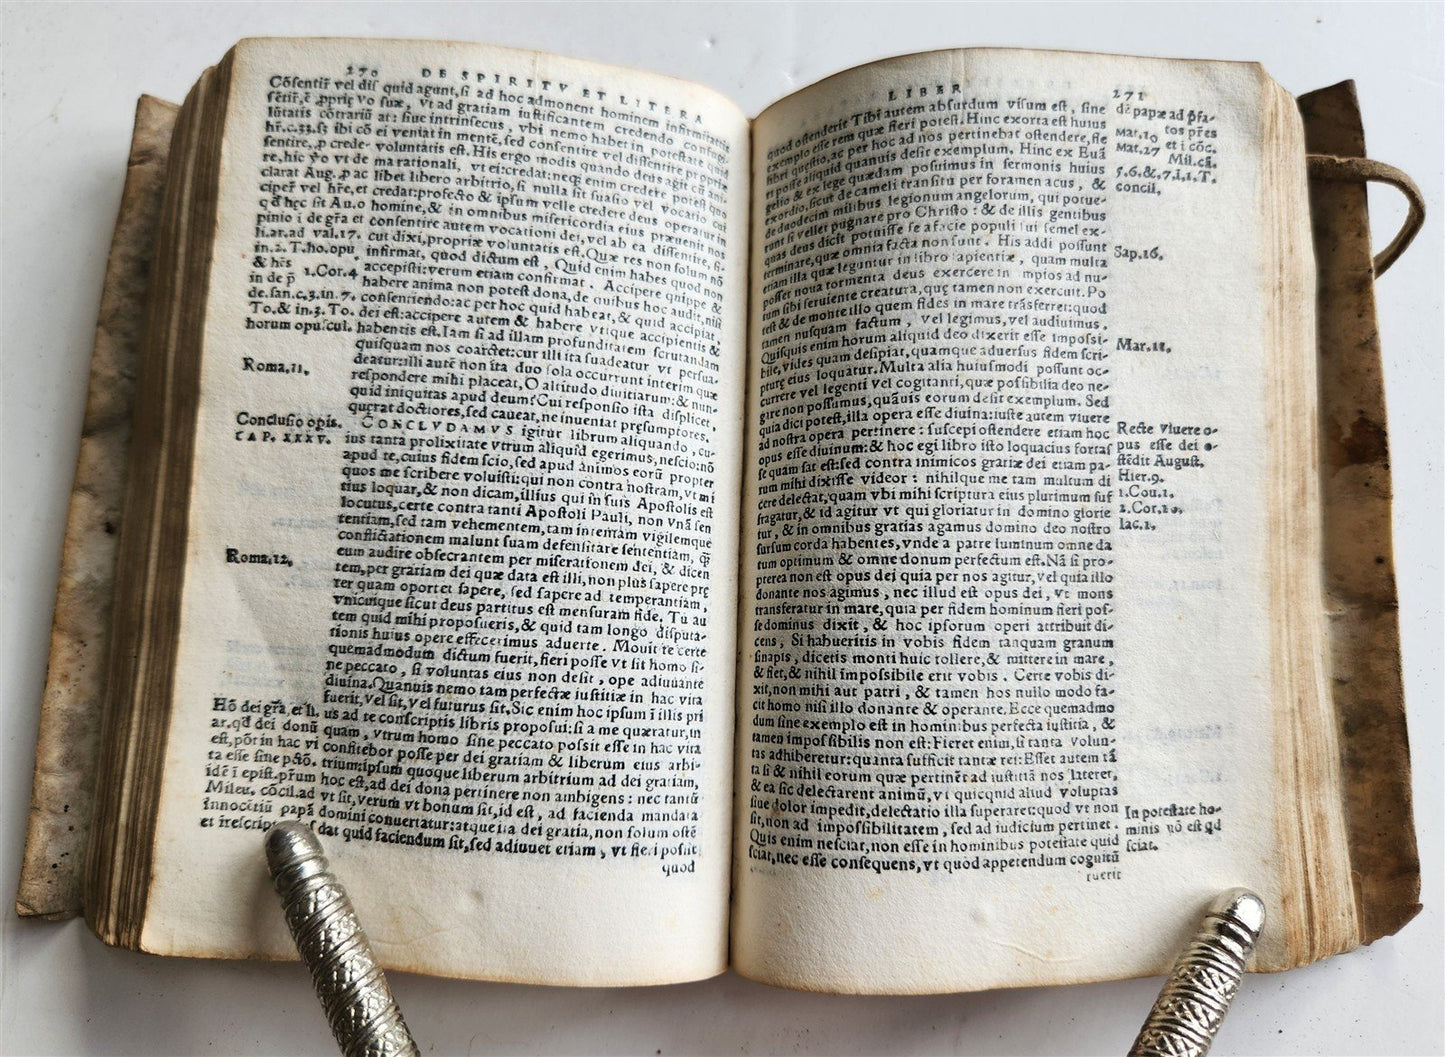 270 DE SPIRITV ET LITERA
Cõsentir̃ vel dis quid agunt, si ad hoc admonent hominem infirmitatis
suæ, vt ad gratiam iustificantem credendo confugi-
at: siue intrinsecus, vbi nemo habet in potestate quid
ei veniat in mentẽ, sed consentire vel dissentire propriæ
voluntatis est. His ergo modis quando deus agit cũ ani-
ma rationali, vt ei credat: neq; enim credere potest quo
libet libero arbitrio, si nulla sit suasio vel vocatio cui
credat: profecto & ipsum velle credere deus operatur in
homine, & in omnibus misericordia eius præuenit nos
consentire autem vocationi dei, vel ab ea dissentire, si-
cut dixi, propriæ voluntatis est. Quæ res non solum nõ
infirmat, quod dictum est, Quid enim habes quod non
1.Cor.4 accepisti: verum etiam confirmat. Accipere quippe &
habere anima non potest dona, de quibus hoc audit, nisi
consentiendo: ac per hoc quid habeat, & quid accipiat,
dei est: accipere autem & habere vtique accipientis &
horum opuscul. habentis est. Iam si ad illam profunditatem scrutandam
quisquam nos coarctet: cur illi ita suadeatur vt persua-
Roma.11. deatur: illi autẽ non ita duo sola occurrunt interim quæ
respondere mihi placeat, O altitudo diuitiarum: & nun-
quid iniquitas apud deum? Cui responsio ista displicet,
quærat doctiores, sed caueat, ne inueniat præsumptores.
Conclusio opis. CONCLVDAMVS igitur librum aliquando, cu-
CAP. XXXV. ius tanta prolixitate vtrum aliquid egerimus, nescio: nõ
apud te, cuius fidem scio, sed apud animos eorũ propter
quos me scribere voluisti: qui non contra nostram, vt mi
tius loquar, & non dicam, illius qui in suis Apostolis est
locutus, certe contra tanti Apostoli Pauli, non vnã sen
tentiam, sed tam vehementem, tam intentam vigilemque
conflictationem malunt suam defensitare sententiam, q̃
Roma.12. eum audire obsecrantem per miserationem dei, & dicen
tem, per gratiam dei quæ data est illi, non plus sapere præ
ter quam oportet sapere, sed sapere ad temperantiam,
vnicuique sicut deus partitus est mensuram fidei. Tu au
tem quid mihi proposueris, & quid tam longo disputa-
tionis huius opere effecerimus aduerte. Mouit te certe
quemadmodum dictum fuerit, fieri posse vt sit homo si-
ne peccato, si voluntas eius non desit, ope adiuuante
diuina. Quamuis nemo tam perfectæ iustitiæ in hac vita
fuerit, vel sit, vel futurus sit. Sic enim hoc ipsum ĩ illis pri
Hõ dei gr̃a, et li. us ad te conscriptis libris proposui: si a me quæratur, in
ar. qđ dei donũ quam, vtrum homo sine peccato possit esse in hac vita
est, põt in hac vi confitebor posse per dei gratiam & liberum eius arbi-
ta esse sine pctõ. trium: ipsum quoque liberum arbitrium ad dei gratiam,
idẽ ĩ epist. pr̃um hoc est, ad dei dona pertinere non ambigens: nec tantũ
Mileu. cõcil. ad vt sit, verum vt bonum sit, id est, ad facienda mandata
innocẽtiũ papã domini conuertatur: atque ita dei gratia, non solum ostẽ
dat quid faciendum sit, sed adiuuet etiam, vt fieri possit
quod
LIBER 271
quod ostenderit Tibi autem absurdum visum est, sine
exemplo esse rem quæ fieri potest. Hinc exorta est huius
libri quæstio, ac per hoc ad nos pertinebat ostendere, fie
ri posse aliquid quamuis desit exemplum. Hinc ex Euã
gelio & ex lege quædam posuimus in sermonis huius
exordio. sicut de cameli transitu per foramen acus, &
de duodecim milibus legionum angelorum, qui potue-
runt si vellet pugnare pro Christo: & de illis gentibus
quas deus dicit potuisse se a facie populi sui semel ex-
terminare, quæ omnia facta non sunt. His addi possunt
etiam illa quæ leguntur in libro sapientiæ, quam multa
posset noua tormenta deus exercere in impios ad nu-
tum sibi seruiente creatura, quæ tamen non exercuit. Po
test & de monte illo quem fides in mare trãsferret: quod
tamen nusquam factum, vel legimus, vel audiuimus.
Quisquis enim horum aliquid deo dixerit esse impossi-
bile, vides quam desipiat, quamque aduersus fidem scri-
pturę eius loquatur. Multa alia huiusmodi possunt oc-
currere vel legenti vel cogitanti, quæ possibilia deo ne-
gare non possumus, quãuis eorum desit exemplum. Sed
quia dici potest, illa opera esse diuina: iuste autem viuere
ad nostra opera pertinere: suscepi ostendere etiam hoc
opus esse diuinum: & hoc egi libro isto loquacius fortas
se quam sat est: sed contra inimicos gratiæ dei etiam pa-
rum mihi dixisse videor: nihilque me tam multum di
cere delectat, quam vbi mihi scriptura eius plurimum suf
fragatur, & id agitur vt qui gloriatur in domino glorie
tur, & in omnibus gratias agamus domino deo nostro
sursum corda habentes, vnde a patre luminum omne da
tum optimum & omne donum perfectum est. Nã si pro-
pterea non est opus dei quia per nos agitur, vel quia illo
donante nos agimus, nec illud est opus dei, vt mons
transferatur in mare, quia per fidem hominum fieri pos-
se dominus dixit, & hoc ipsorum operi attribuit di-
cens, Si habueritis in vobis fidem tanquam granum
sinapis, dicetis monti huic tollere, & mittere in mare,
& fiet, & nihil impossibile erit vobis. Certe vobis di-
xit, non mihi aut patri, & tamen hos nullo modo fa-
cit homo nisi illo donante & operante. Ecce quemadmo
dum sine exemplo est in hominibus perfecta iustitia, &
tamen impossibilis non est: Fieret enim, si tanta volun-
tas adhiberetur: quanta sufficit tantæ rei: Esset autem tã
ta si & nihil eorum quæ pertinẽt ad iustitiã nos lateret,
& ea sic delectarent animũ, vt quicquid aliud voluptas
siue dolor impedit, delectatio illa superaret: quod vt non
sit, non ad impossibilitatem, sed ad iudicium pertinet.
Quis enim nesciat, non esse in hominibus potestate quid
sciat, nec esse consequens, vt quod appetendum cognitũ
fuerit
Mar.10
Mat.27
concil.
Sap.16.
Mar.11.
Recte viuere o-
pus esse dei o-
stẽdit August.
Hier.9.
1.Cor.1.
2.Cor.10.
Iac.1.
In potestate ho-
minis nõ est qđ
sciat.